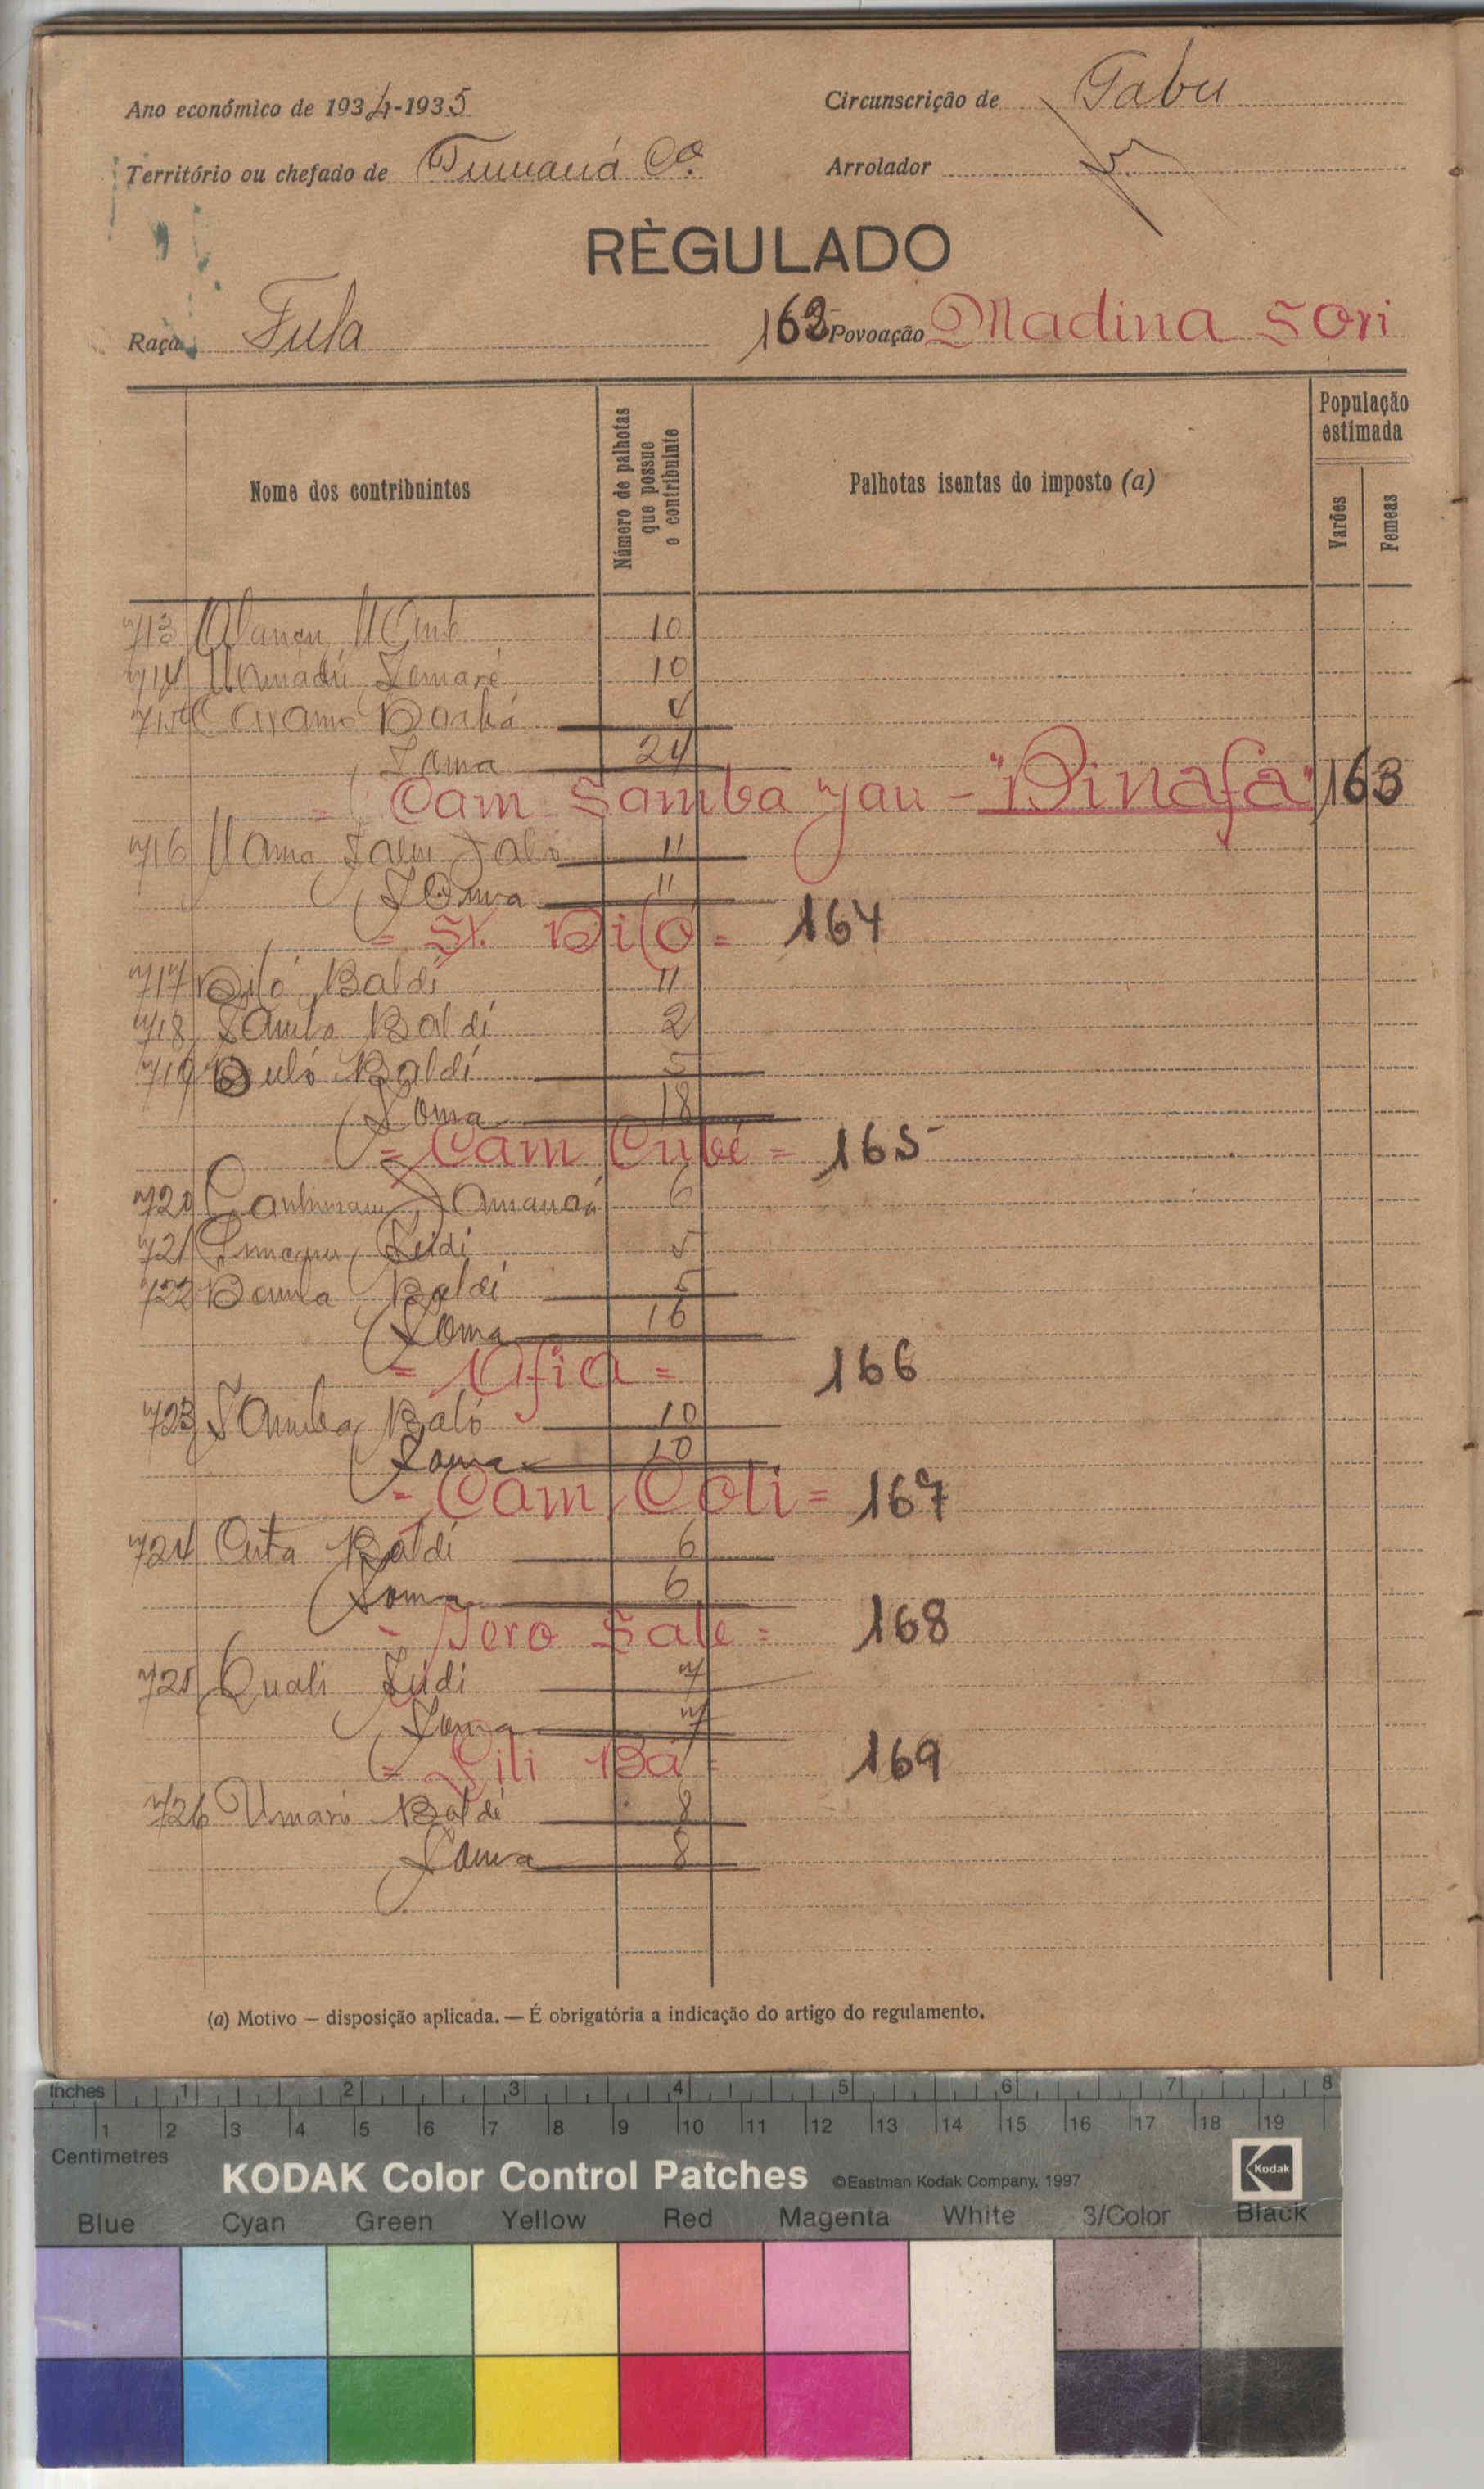 Ano económico de 1934-1935 Circunscrição de Gabu
Território ou chefado de Tumaná Arrolador
RÈGULADO
Raça Fula 162 Povoação Madina Sori
Nome dos contribuintes
Número de palhotas que possue o contribuinte
Palhotas isentas do imposto (a)
População estimada
Varões
Femeas
713 10
714 Mamadú 10
715 4
Soma 24
= Cam Samba Jau - "Dinafa" 163
716 11
Soma 11
= St. Diló = 164
717 Diló Baldé 11
718 Samba Baldé 2
719 Buló Baldé 5
Soma 18
= Cam Cubé = 165
720 6
721 Seidi 5
722 Demba Baldé 5
Soma 16
= Afia = 166
723 Samba Baló 10
Soma 10
= Cam Coli = 167
724 Cuta Baldé 6
Soma 6
= Jero Sale = 168
725 Quali Seidi 7
Soma 7
= Lili Bá = 169
726 Umaro Baldé 8
Soma 8
(a) Motivo — disposição aplicada. — É obrigatória a indicação do artigo do regulamento.
Inches 1 2 3 4 5 6 7 8
1 2 3 4 5 6 7 8 9 10 11 12 13 14 15 16 17 18 19
Centimetres
KODAK Color Control Patches ©Eastman Kodak Company, 1997 Kodak
Blue Cyan Green Yellow Red Magenta White 3/Color Black